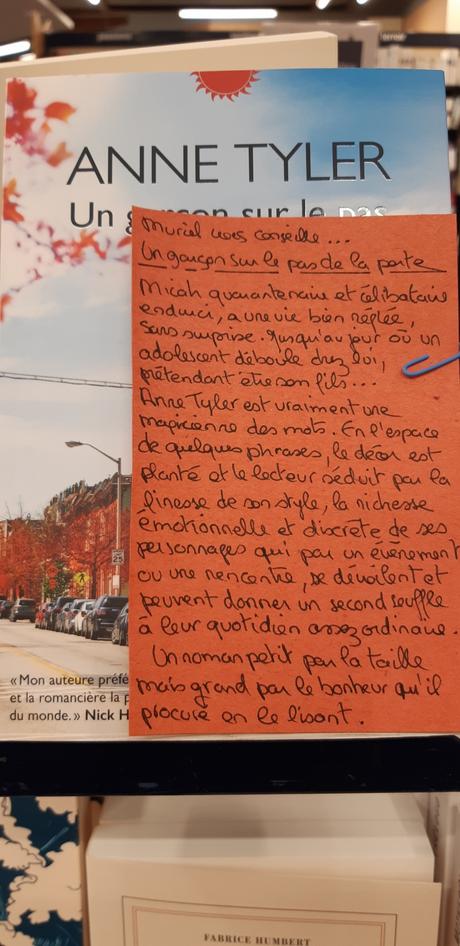 ANNE TYLER
Un garçon sur le pas
Muriel vous conseille...
Un garçon sur le pas de la porte
Micah quarantenaire et célibataire
endurci, a une vie bien réglée,
sans surprise. Jusqu'au jour où un
adolescent déboule chez lui,
prétendant être son fils...
Anne Tyler est vraiment une
magicienne des mots. En l'espace
de quelques phrases, le décor est
planté et le lecteur séduit par la
finesse de son style, la richesse
émotionnelle et discrète de ses
personnages qui par un événement
ou une rencontre, se dévoilent et
peuvent donner un second souffle
à leur quotidien assez ordinaire.
Un roman petit par la taille
mais grand par le bonheur qu'il
procure en le lisant.
« Mon auteure préfé
et la romancière la p
du monde. » Nick H
FABRICE HUMBERT